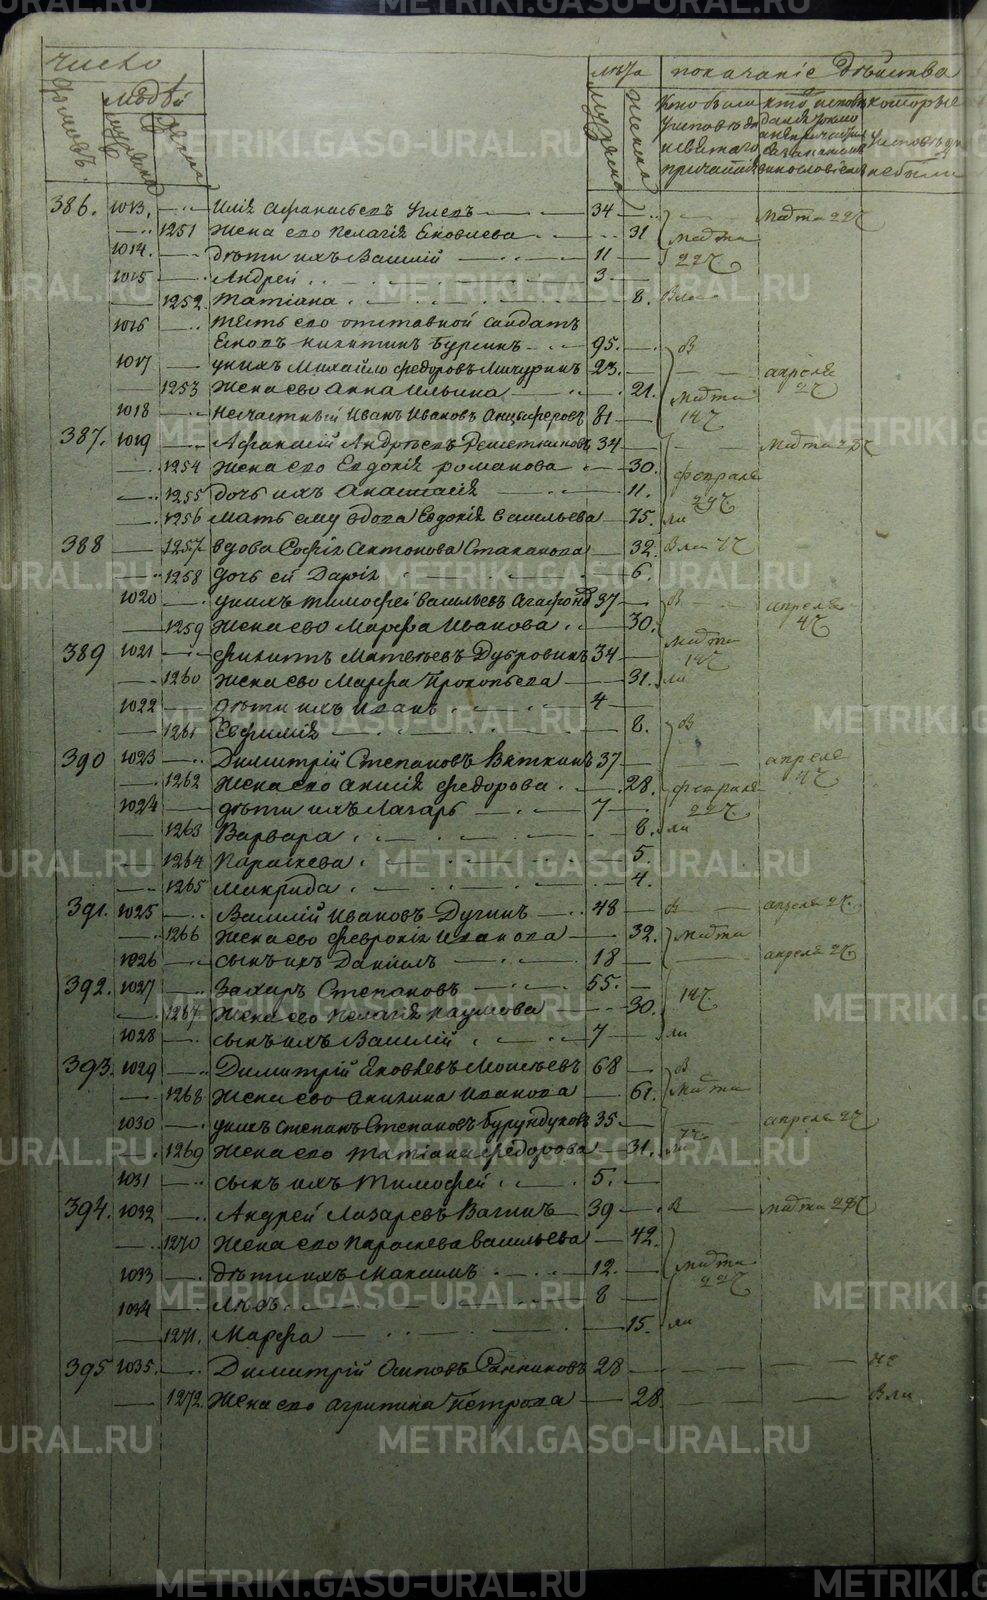 число
домовъ.
людей
мужеска
женска
лѣта
мужеска
женска
показаніе дѣйства
кто были у исповѣди и святаго причастія
которые у исповѣди не были
386. 1013. Илія Афанасьевъ 34 марта 22
1251 жена его Пелагія Яковлева 31 марта
1014. дѣти ихъ Василій 11 22
1015 Андрей 3
1252. Татіана 8.
1016 тесть его отставной салдатъ
Яковъ Никитинъ 95. В
1017 у нихъ Михайло Федоровъ Мичуринъ 23. апреля 2
1253 жена его Анна Ильина 21. марта
1018 Несчастный Иванъ Ивановъ Анцыферовъ 81 14
387. 1019 Афанасій Андреевъ Решетниковъ 34 марта
1254 жена его Евдокія Романова 30. февраля
1255 дочь ихъ Анастасія 11. 29
1256 мать ему вдова Евдокія Васильева 75. ли
388 1257 вдова Софія Антонова Стаканова 32.
1258 дочь ей Дарія 6.
1020 у нихъ Тимофей Васильевъ 37 В апреля 4
1259 жена его Марфа Иванова 30. марта
389 1021 Филиппъ Матвеевъ Дубровинъ 34 14
1260 жена его Марфа Прокопьева 31. ли
1022 дѣти ихъ Иванъ 4
1261 Евфимія 8. В
390 1023 Димитрій Степановъ Вяткинъ 37 апреля
1262 жена его Анисія Федорова 28. февраля
1024 дѣти ихъ Лазарь 7 22
1263 Варвара 8. ли
1264 Параскева 5.
1265 Макрида 4.
391. 1025 Василій Ивановъ Дугинъ 48 В апреля 2
1266 жена его Феврокія Иванова 32. марта
1026 сынъ ихъ Даніилъ 18 апреля 2
392. 1027 Захаръ Степановъ 55. 14
1267 жена его Пелагія Наумова 30.
1028 сынъ ихъ Василій 7 ли
393. 1029 Димитрій Яковлевъ Моисеевъ 68 В
1268 жена его Акилина Иванова 61. марта
1030 у нихъ Степанъ Степановъ Бурундуковъ 35 апреля 2
1269 жена его Татіана Федорова 31. ли
1031 сынъ ихъ Тимофей 5.
394. 1032 Андрей Лазаревъ Вагинъ 39 В марта
1270 жена его Параскева Васильева 42.
1033 дѣти ихъ Максимъ 12. марта
1034 8 22
1271. Марфа 15. ли
395 1035. Димитрій Осиповъ Санниковъ 28 не
1272 жена его Агрипина Петрова 28 Были
METRIKI.GASO-URAL.RU